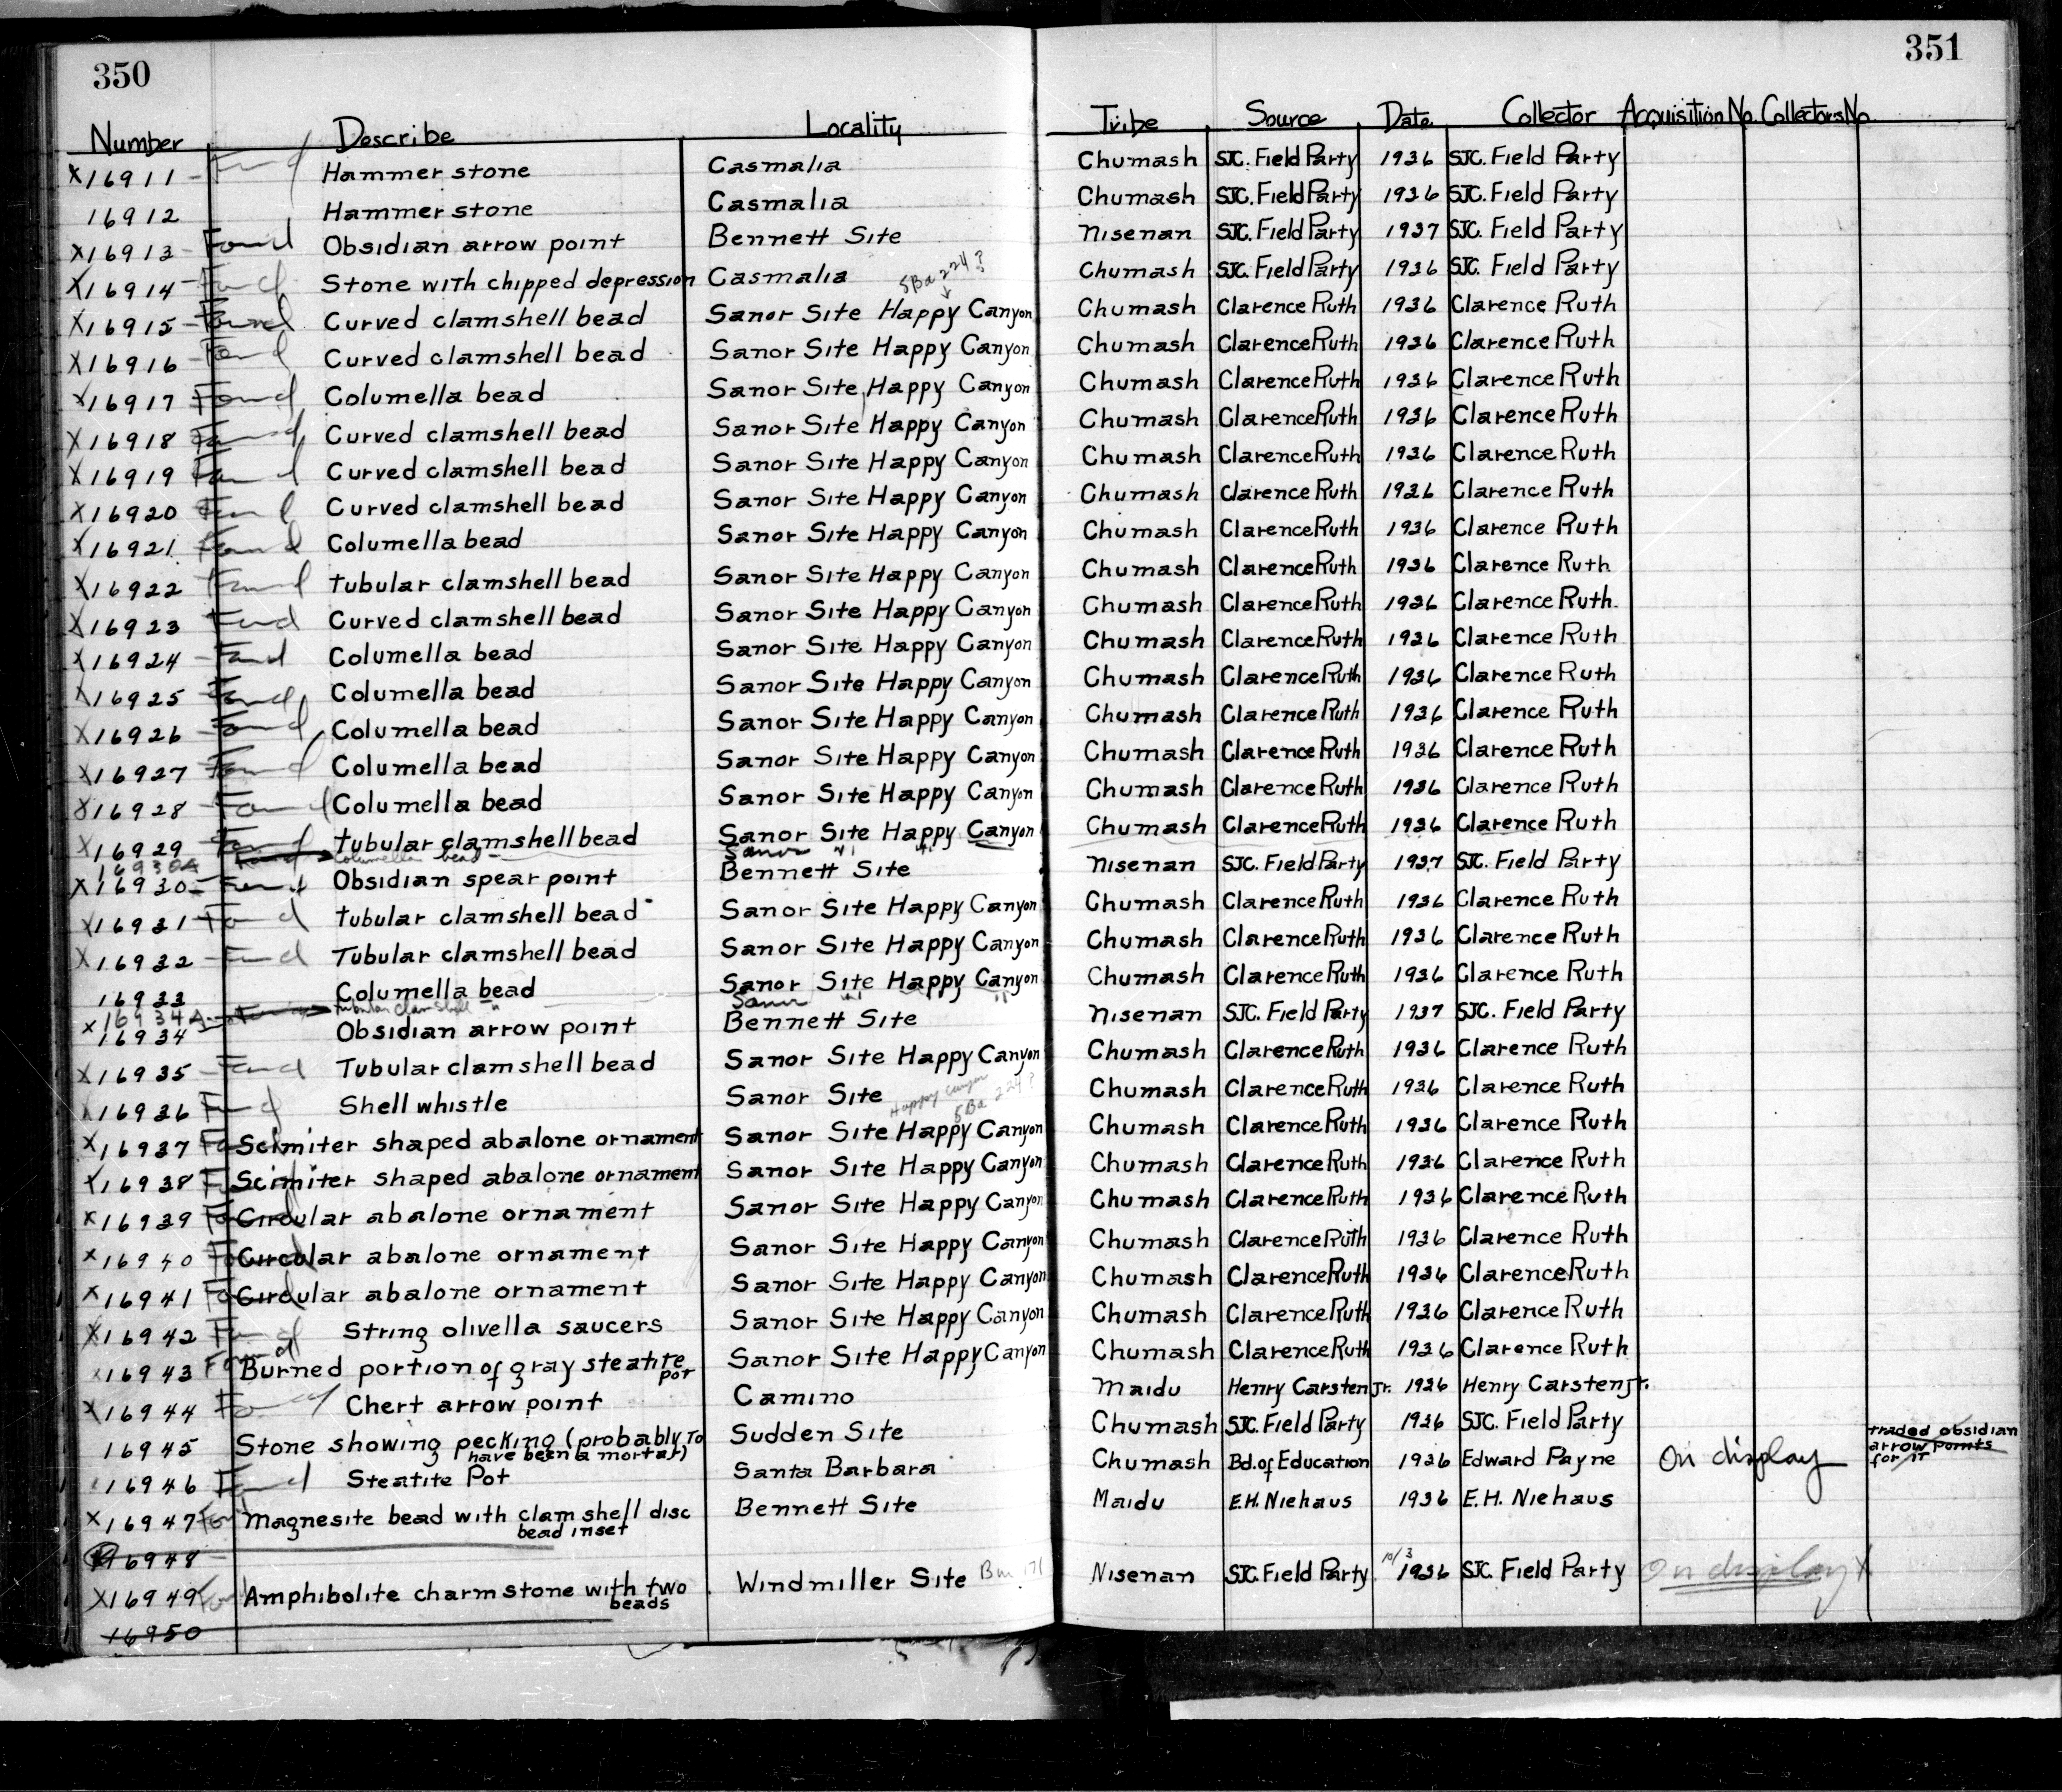 350
351
Number Describe Locality Tribe Source Date Collector Acquisition No. Collectors No.
X16911 - Found Hammer stone Casmalia Chumash SJC. Field Party 1936 SJC. Field Party
16912 Hammer stone Casmalia Chumash SJC. Field Party 1936 SJC. Field Party
X16913 - Found Obsidian arrow point Bennett Site Nisenan SJC. Field Party 1937 SJC. Field Party
X16914 - Found Stone with chipped depression Casmalia Chumash SJC. Field Party 1936 SJC. Field Party
SBa 224?
X16915 - Found Curved clamshell bead Sanor Site Happy Canyon Chumash Clarence Ruth 1936 Clarence Ruth
X16916 - Found Curved clamshell bead Sanor Site Happy Canyon Chumash Clarence Ruth 1936 Clarence Ruth
X16917 Found Columella bead Sanor Site Happy Canyon Chumash Clarence Ruth 1936 Clarence Ruth
X16918 Found Curved clamshell bead Sanor Site Happy Canyon Chumash Clarence Ruth 1936 Clarence Ruth
X16919 Found Curved clamshell bead Sanor Site Happy Canyon Chumash Clarence Ruth 1936 Clarence Ruth
X16920 Found Curved clamshell bead Sanor Site Happy Canyon Chumash Clarence Ruth 1936 Clarence Ruth
X16921 Found Columella bead Sanor Site Happy Canyon Chumash Clarence Ruth 1936 Clarence Ruth
X16922 Found Tubular clamshell bead Sanor Site Happy Canyon Chumash Clarence Ruth 1936 Clarence Ruth
X16923 Found Curved clamshell bead Sanor Site Happy Canyon Chumash Clarence Ruth 1936 Clarence Ruth.
X16924 - Found Columella bead Sanor Site Happy Canyon Chumash Clarence Ruth 1936 Clarence Ruth
X16925 - Found Columella bead Sanor Site Happy Canyon Chumash Clarence Ruth 1936 Clarence Ruth
X16926 - Found Columella bead Sanor Site Happy Canyon Chumash Clarence Ruth 1936 Clarence Ruth
X16927 Found Columella bead Sanor Site Happy Canyon Chumash Clarence Ruth 1936 Clarence Ruth
X16928 - Found Columella bead Sanor Site Happy Canyon Chumash Clarence Ruth 1936 Clarence Ruth
X16929 - Found Tubular clamshell bead Sanor Site Happy Canyon Chumash Clarence Ruth 1936 Clarence Ruth
16930A Found Columella bead Sanor " "
X16930 - Found Obsidian spear point Bennett Site Nisenan SJC. Field Party 1937 SJC. Field Party
X16931 Found Tubular clamshell bead Sanor Site Happy Canyon Chumash Clarence Ruth 1936 Clarence Ruth
X16932 - Found Tubular clamshell bead Sanor Site Happy Canyon Chumash Clarence Ruth 1936 Clarence Ruth
16933 Columella bead Sanor Site Happy Canyon Chumash Clarence Ruth 1936 Clarence Ruth
16934A Found Tubular Clam Shell " Sanor " " "
X16934 Obsidian arrow point Bennett Site Nisenan SJC. Field Party 1937 SJC. Field Party
X16935 - Found Tubular clamshell bead Sanor Site Happy Canyon Chumash Clarence Ruth 1936 Clarence Ruth
X16936 Found Shell whistle Sanor Site Happy Canyon SBa 224? Chumash Clarence Ruth 1936 Clarence Ruth
X16937 Fo Scimiter shaped abalone ornament Sanor Site Happy Canyon Chumash Clarence Ruth 1936 Clarence Ruth
X16938 Fo Scimiter shaped abalone ornament Sanor Site Happy Canyon Chumash Clarence Ruth 1936 Clarence Ruth
X16939 Fo Circular abalone ornament Sanor Site Happy Canyon Chumash Clarence Ruth 1936 Clarence Ruth
X16940 Fo Circular abalone ornament Sanor Site Happy Canyon Chumash Clarence Ruth 1936 Clarence Ruth
X16941 Fo Circular abalone ornament Sanor Site Happy Canyon Chumash Clarence Ruth 1936 Clarence Ruth
X16942 Found String olivella saucers Sanor Site Happy Canyon Chumash Clarence Ruth 1936 Clarence Ruth
X16943 Found Burned portion of gray steatite pot Sanor Site Happy Canyon Chumash Clarence Ruth 1936 Clarence Ruth
X16944 Found Chert arrow point Camino Maidu Henry Carsten Jr. 1936 Henry Carsten Jr.
16945 Stone showing pecking (probably to Sudden Site Chumash SJC. Field Party 1936 SJC. Field Party
have been a mortar)
16946 Found Steatite Pot Santa Barbara Chumash Bd. of Education 1936 Edward Payne On display
traded obsidian
arrow points
for it
X16947 Fo Magnesite bead with clam shell disc Bennett Site Maidu E.H. Niehaus 1936 E.H. Niehaus
bead inset
16948
X16949 Fo Amphibolite charmstone with two Windmiller Site Nisenan SJC. Field Party 10/3 1936 SJC. Field Party On display X
beads
16950